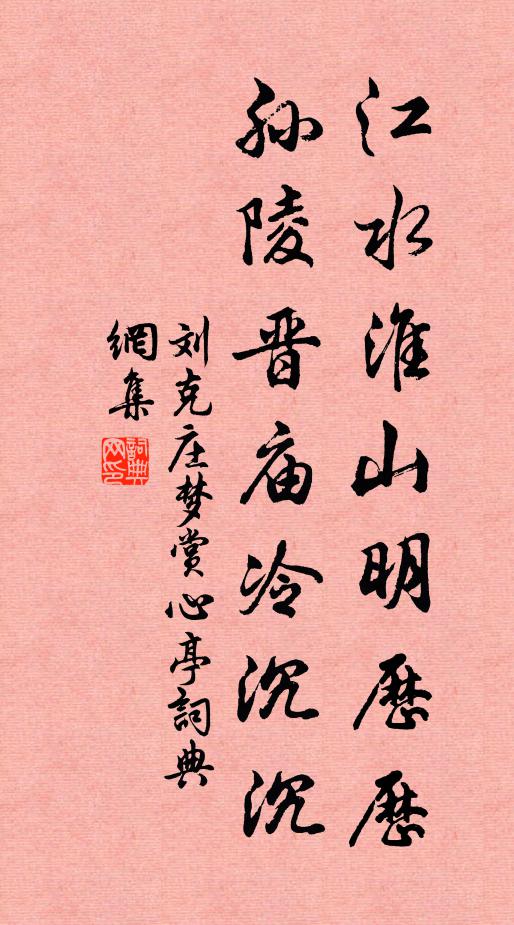 江水淮山明歷歷
孙陵晋庙冷沉沉
刘克庄梦赏心亭詞典
網集
詞典网印